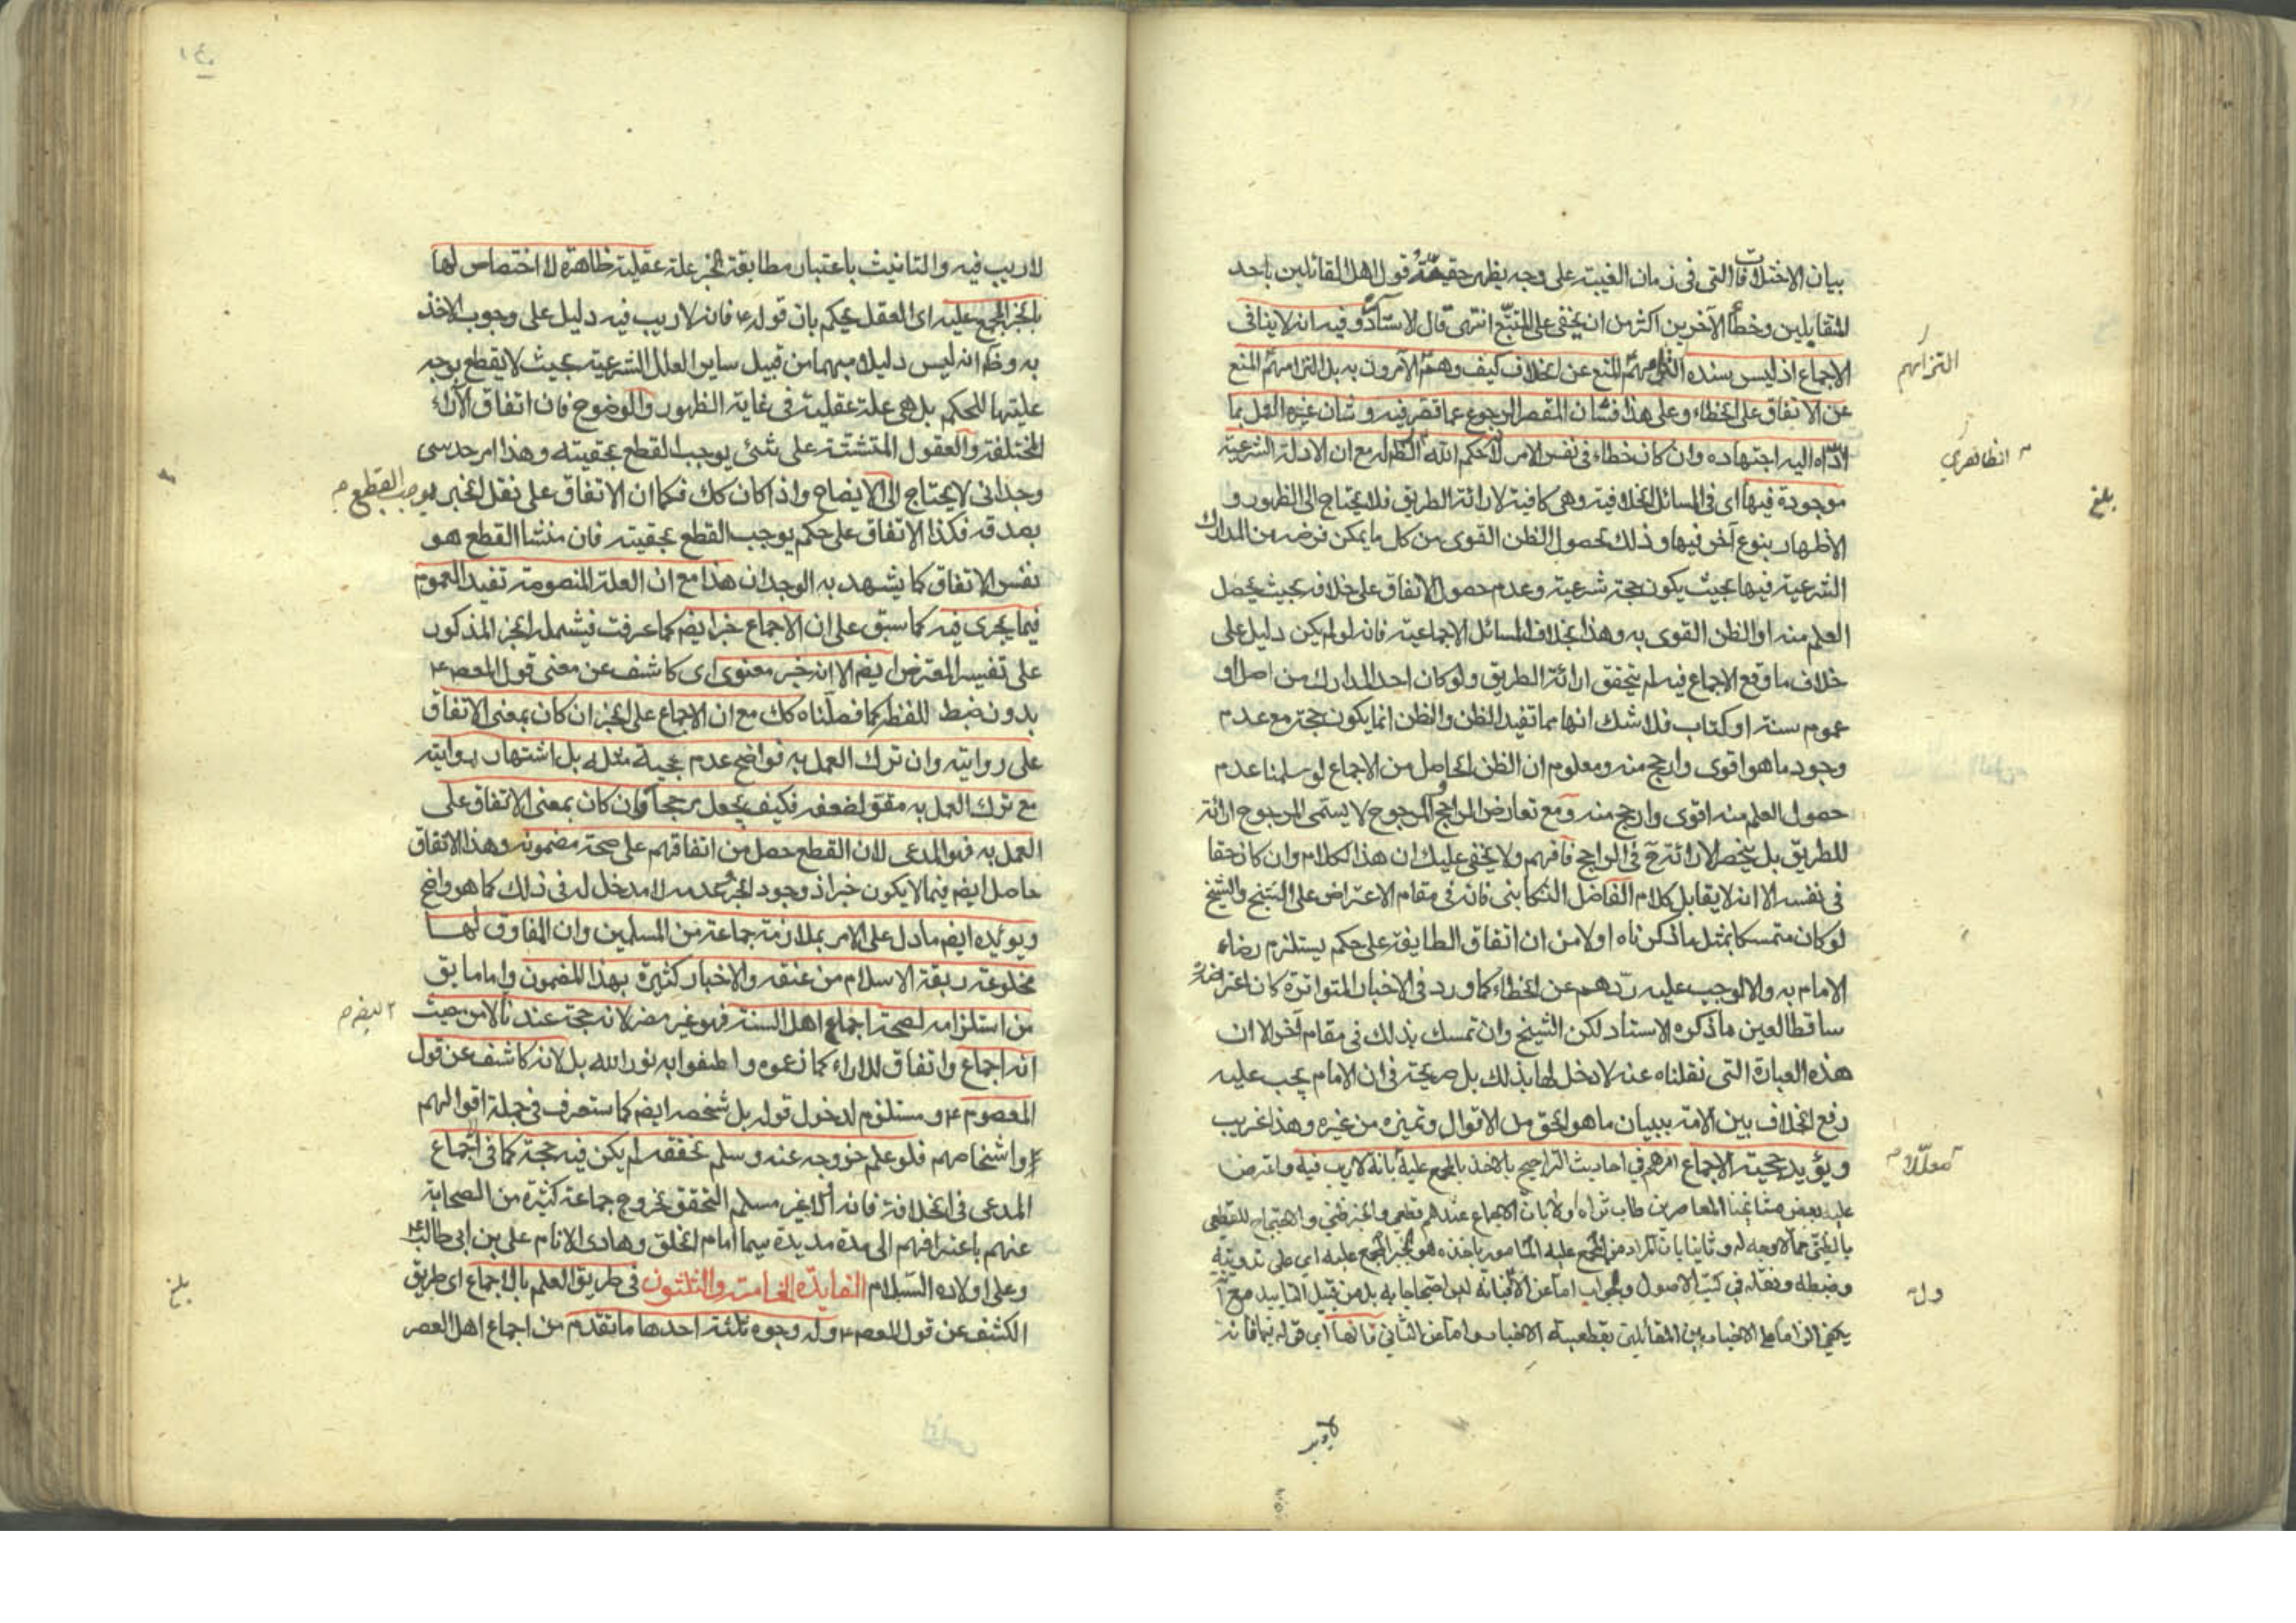 بيان الاختلافات التى فى زمان الغيبة على وجه يظهر حقيقة قول اهل القائلين باحد
المتقابلين وخطأ الآخرين اكثر من ان يخفى على المتتبّع انتهى قال الاستاد وفيه انه لا ينافى
الاجماع اذ ليس سنده المنع عن الخلاف كيف وهم الآمرون به بل التزامهم المنع
عن الاتفاق على الخطاء وعلى هذا فشان المقصر الرجوع عما قصر فيه وشان غيره العمل بما
ادّاه اليه اجتهاده وان كان خطاء فى نفس الامر لانه حكم الله الظ له مع ان الادلة الشرعية
موجودة فيها اى فى المسائل الخلافية وهى كافية لارائة الطريق فلا يحتاج الى الظهور و
الاظهار بنوع آخر فيها وذلك بحصول الظن القوى من كل ما يمكن فرضه من المدارك
الشرعية فيها بحيث يكون حجة شرعية وعدم حصول الاتفاق على خلافه بحيث يحصل
العلم منه او الظن القوى به وهذا بخلاف المسائل الاجماعية فانه لو لم يكن دليل على
خلاف ما وقع الاجماع فيه لم يتحقق ارائة الطريق ولو كان احد المدارك من اصل او
عموم سنة او كتاب فلا شك انها مما تفيد الظن والظن انما يكون حجة مع عدم
وجود ما هو اقوى وارجح منه ومعلوم ان الظن الحاصل من الاجماع لو سلمنا عدم
حصول العلم منه اقوى وارجح منه ومع تعارض الراجح والمرجوح لا يسمى المرجوح ارائة
للطريق بل ينحصر الارائة ح فى الراجح فافهم ولا يخفى عليك ان هذا الكلام وان كان حقا
فى نفسه الا انه لا يقابل كلام الفاضل التنكابنى فانه فى مقام الاعتراض على الشيخ والشيخ
لو كان متمسكا بمثل ما ذكرناه اولا من ان اتفاق الطايفة على حكم يستلزم رضاء
الامام به والا لوجب عليه ردّهم عن الخطاء كما ورد فى الاخبار المتواترة كان اعتراضه
ساقطا لعين ما ذكره الاستاد لكن الشيخ وان تمسك بذلك فى مقام آخر الا ان
هذه العبارة التى نقلناه عنه لا دخل لها بذلك بل صريحة فى ان الامام يجب عليه
رفع الخلاف بين الامة ببيان ما هو الحق من الاقوال وتميزه من غيره وهذا غريب
ويؤيد حجية الاجماع امرهم فى احاديث التراجيح بالاخذ بالمجمع عليه بانه لا ريب فيه واعترض
عليه بعض مشائخنا المعاصرين طاب ثراه اولا بان الاجماع عندهم قطعى والخبر ظنى والاحتجاج للقطعى
بالظنى مما لا وجه له وثانيا بان المراد من المجمع عليه المامور باخذه هو الخبر المجمع عليه اى على تدوينه
وضبطه ونقله فى كتب الاصول والجواب اما عن الاول فبانه ليس احتجاجا به بل من قبيل التاييد مع
الاخبار بين القائلين بقطعية الاخبار واما عن الثانى اى قوله فيما فانه
التزامهم
الظاهرى
بلغ
معللا م
وله
لا ريب
لا ريب فيه والتانيث باعتبار مطابقة الخبر علة عقلية ظاهرة لا اختصاص لها
بالخبر المجمع عليه اى العقل يحكم بان قوله ع فانه لا ريب فيه دليل على وجوب الاخذ
به وظ انه ليس دليلا مبهما من قبيل ساير العلل الشرعية بحيث لا يقطع بوجه
عليتها للحكم بل هى علة عقلية فى غاية الظهور والوضوح فان اتفاق الآراء
المختلفة والعقول المتشتتة على شئى يوجب القطع بحقيته وهذا امر حدسى
وجدانى لا يحتاج الى الايضاح واذا كان كك فكما ان الاتفاق على نقل الخبر يوجب القطع م
بصدقه فكذا الاتفاق على حكم يوجب القطع بحقيته فان منشا القطع هو
نفس الاتفاق كما يشهد به الوجدان هذا مع ان العلة المنصوصة تفيد العموم
فيما يجرى فيه كما سبق على ان الاجماع خبر ايضا كما عرفت فيشمله الخبر المذكور
على تفسير المعترض ايض الا انه خبر معنوى اى كاشف عن معنى قول المعص ع
بدون ضبط للفظه كما فصلناه كك مع ان الاجماع على الخبر ان كان بمعنى الاتفاق
على روايته وان ترك العمل به فواضح عدم حجية مثله بل اشتهار روايته
مع ترك العمل به مقو لضعفه فكيف يجعل مرجحا وان كان بمعنى الاتفاق على
العمل به فهو المدعى لان القطع حصل من اتفاقهم على صحة مضمونه وهذا الاتفاق
حاصل ايض فيما لا يكون خبر اذ وجود الخبر وعدمه لا مدخل له فى ذلك كما هو واضح
ويؤيده ايض ما دل على الامر بملازمة جماعة من المسلمين وان المفارق لها
مخلوعة ربقة الاسلام من عنقه والاخبار كثيرة بهذا المضمون واما ما بق
من استلزامه لصحة اجماع اهل السنة فهو غير مضر لانه حجة عندنا لا من حيث
انه اجماع واتفاق للاراء كما زعموه واطفوا به نور الله بل لانه كاشف عن قول
المعصوم ع ومستلزم لدخول قوله بل شخصه ايض كما ستعرف فى جملة اقوالهم
واشخاصهم فلو علم خروجه عنه وسلم تحققه لم يكن فيه حجة كما فى اجماع
المدعى فى الخلافة فانه اولا غير مسلم التحقق بخروج جماعة كثيرة من الصحابة
عنهم باعترافهم الى مدة مديدة سيما امام الخلق وهادى الانام على بن ابى طالب ع
وعلى اولاده السّلام الفايدة الخامسة والثلثون فى طريق العلم بالاجماع اى طريق
الكشف عن قول المعص ع وله وجوه ثلثة احدها ما تقدم من اجماع اهل العصر
بلغ